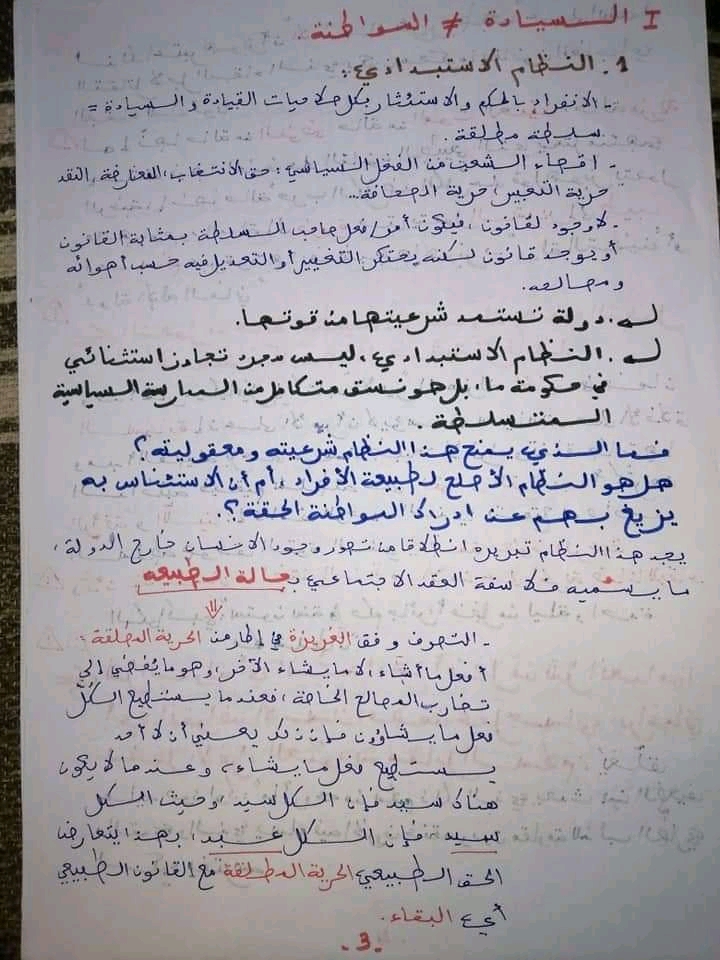 I السيادة ≠ المواطنة.
1. النظام الاستبدادي:
- الانفراد بالحكم والاستئثار بكل صلاحيات القيادة والسيادة =
سلطة مطلقة.
- اقصاء الشعب من الفعل السياسي: حق الانتخاب، المعارضة، النقد
حرية التعبير، حرية الصحافة...
- لا وجود لقانون، فيكون أمر/فعل صاحب السلطة بمثابة القانون
أو يوجد قانون لكنه يحتكر التغيير أو التعديل فيه حسب أهوائه
ومصالحه.
دولة تستمد شرعيتها من قوتها.
النظام الاستبدادي، ليس مجرد تجاوز استثنائي
في حكومة ما، بل هو نسق متكامل من الممارسة السياسية
المتسلطة.
فما الذي يمنح هذا النظام شرعيته ومعقوليته؟
هل هو النظام الأصلح لطبيعة الأفراد، أم أن الاستئناس به
يزيغ بهم عن ادراك المواطنة الحقة؟.
يجد هذا النظام تبريره انطلاقا من تصور وجود الانسان خارج الدولة،
ما يسميه فلاسفة العقد الاجتماعي بـ حالة الطبيعة
⇓
- التصرف وفق الغريزة في إطار من الحرية المطلقة:
أفعل ما أشاء، لا ما يشاء الآخر، وهو ما يفضي إلى
تضارب المصالح الخاصة، فعندما يستطيع الكلّ
فعل ما يشاؤون فإن ذلك يعني أن لا أحد
يستطيع فعل ما يشاء، وعندما لا يكون
هناك سيد فإن الكل سيد، وحيث الكل
سيد فإن الكل عبد، بهذا يتعارض
الحق الطبيعي الحرية المطلقة مع القانون الطبيعي
أي البقاء.
- 3 -